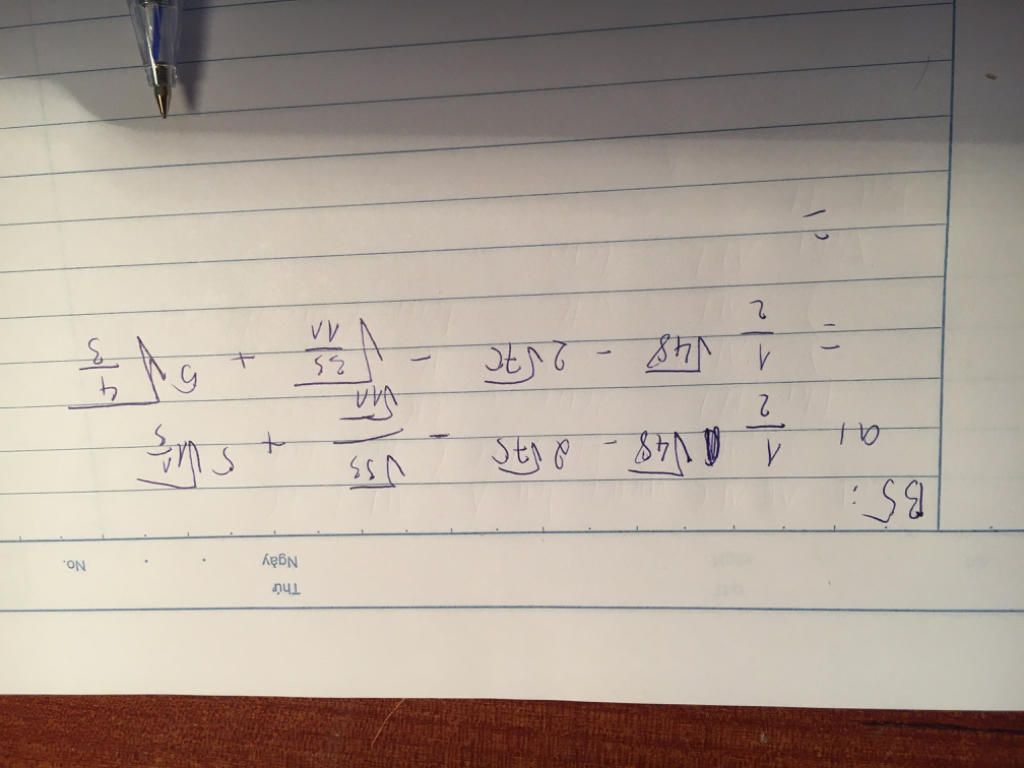 Thứ
Ngày . . No.
B5:
a, 1/2 √48 - 2√75 - √33/√11 + 5√1 1/3
= 1/2 √48 - 2√75 - √33/11 + 5√4/3
=